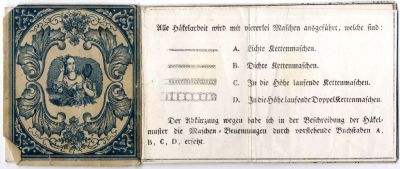 Alle Häkelarbeit wird mit viererlei Maschen ausgeführt, welche sind:
A. Lichte Kettenmaschen.
B. Dichte Kettenmaschen.
C. In die Höhe laufende Kettenmaschen.
D. In die Höhe laufende Doppel Kettenmaschen.
Der Abkürzung wegen habe ich in der Beschreibung der Häkel-
muster die Maschen-Benennungen durch vorstehende Buchstaben A,
B, C, D, ersetzt.